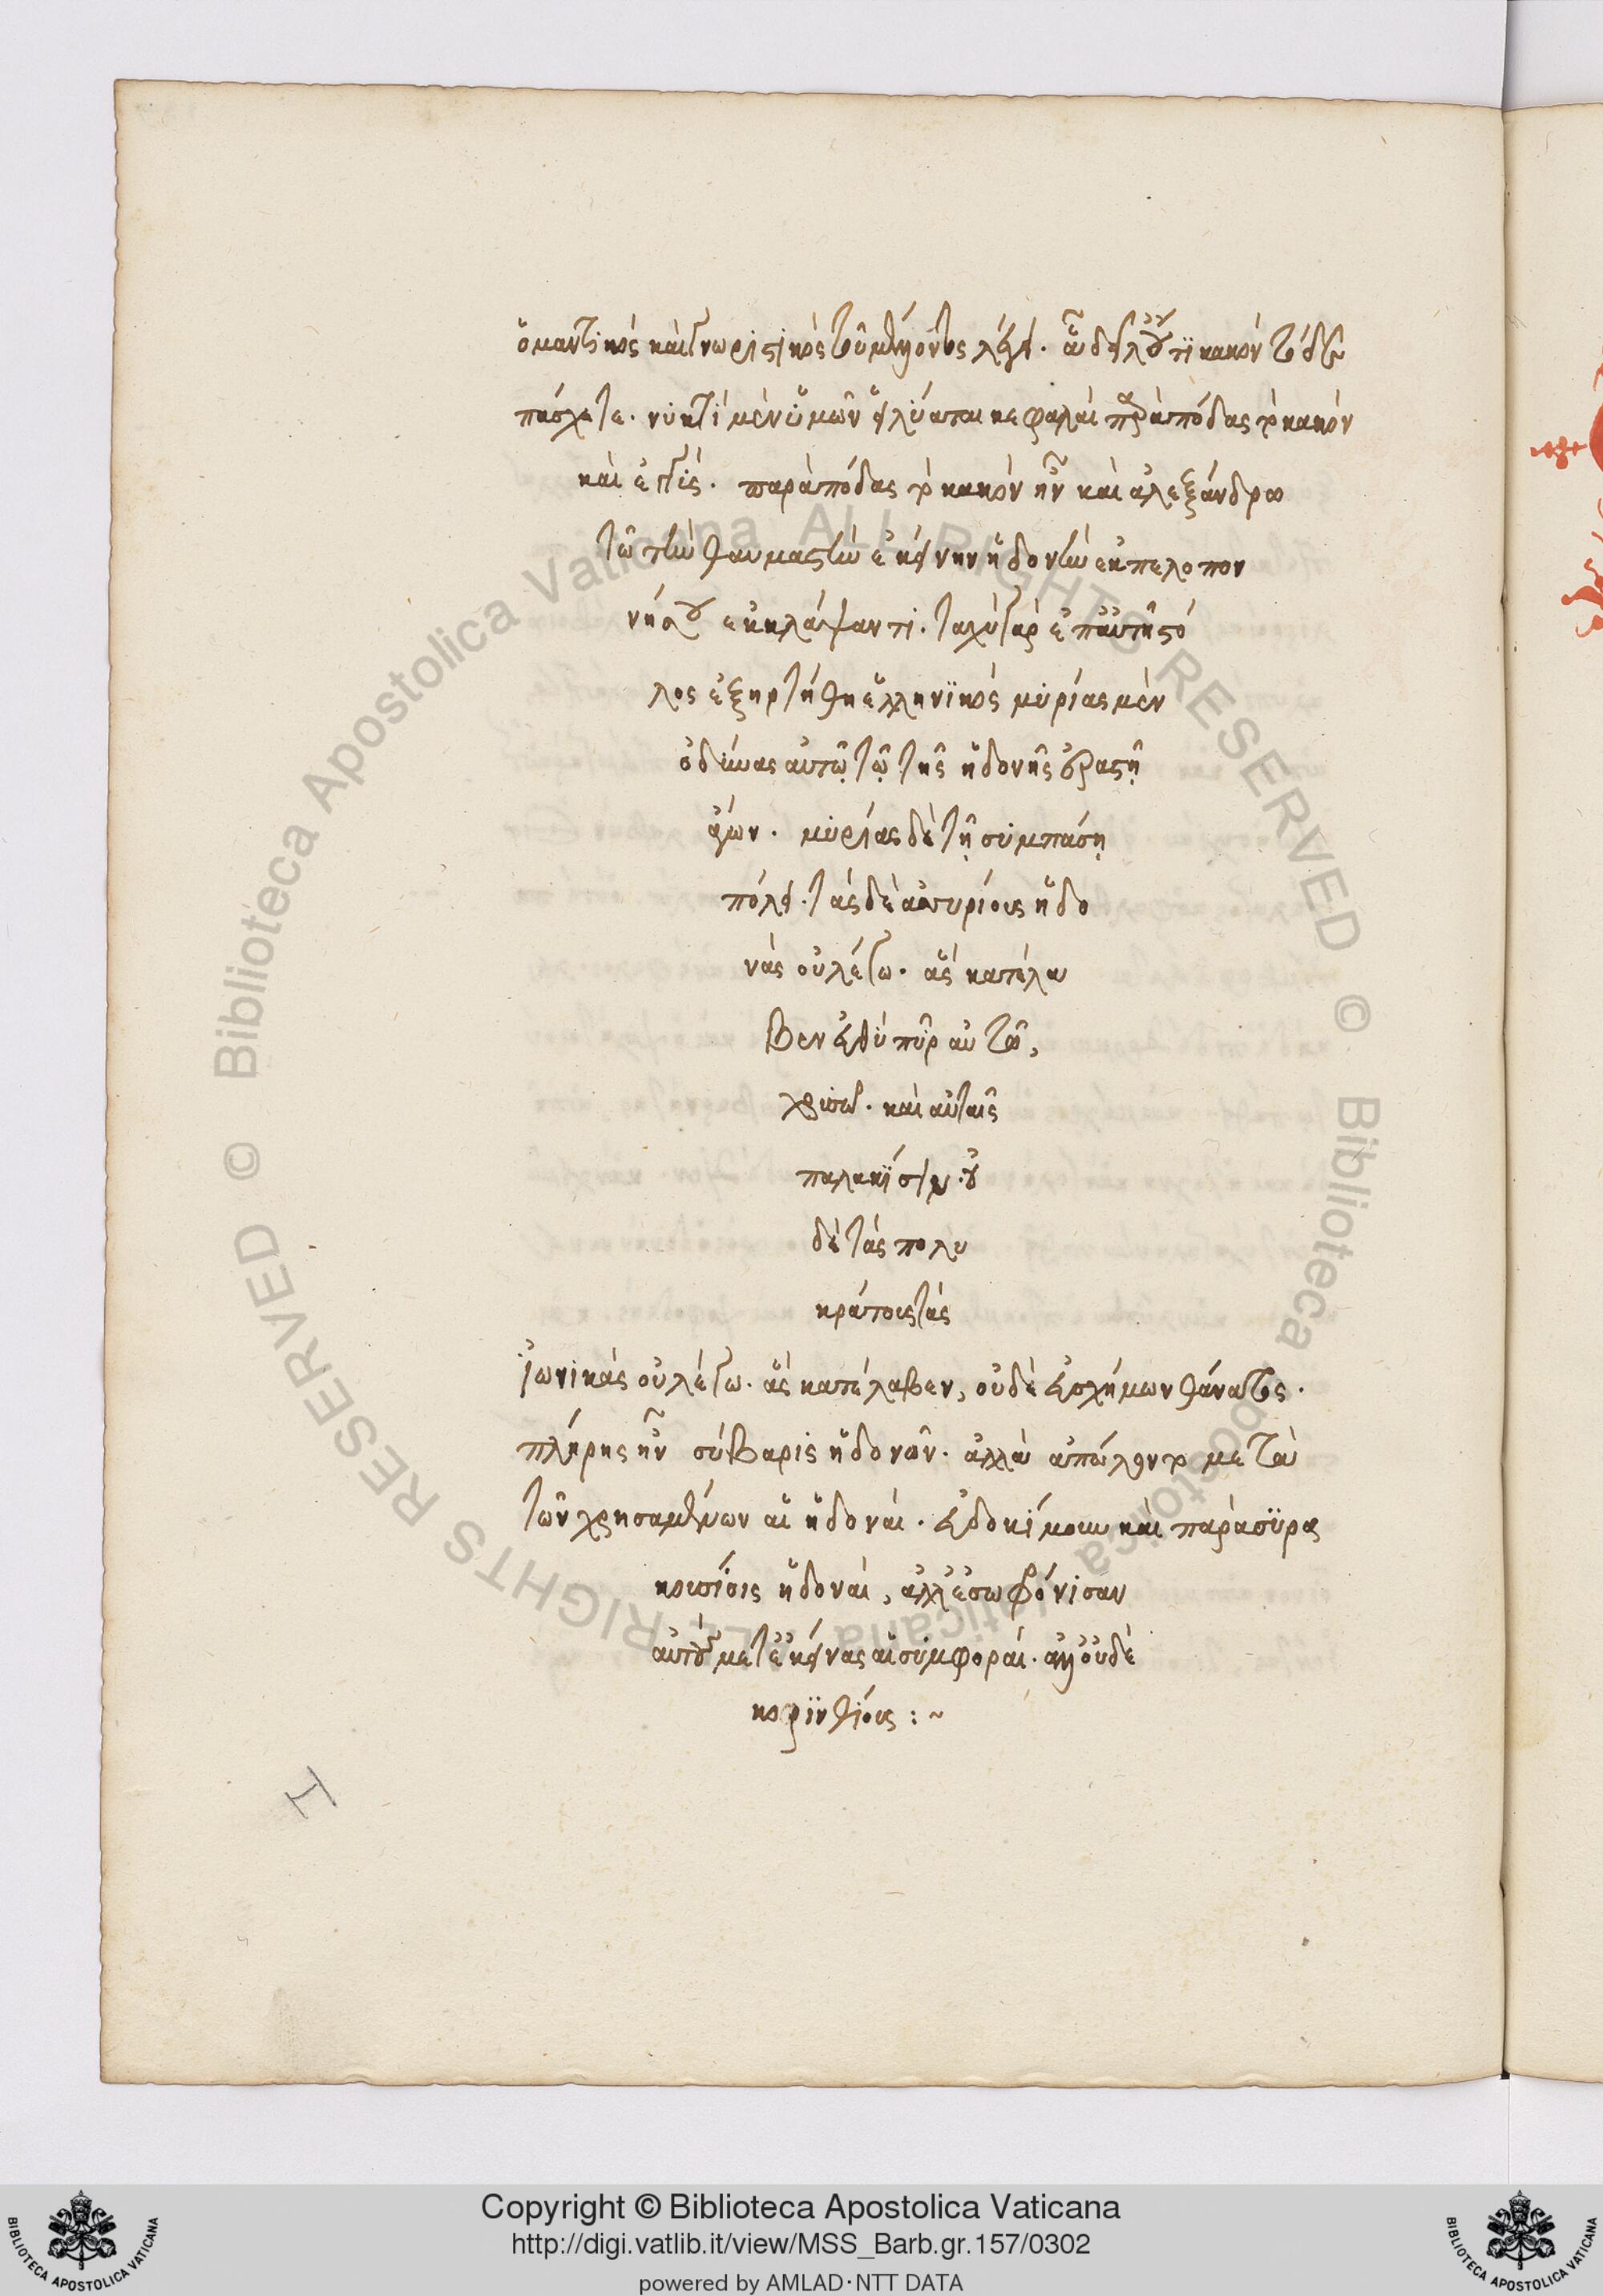 ὁ μαντικὸς καὶ γνωριστικὸς τοῦ μέλλοντος λέγει. ἆ δειλοὶ τί κακὸν τόδε
πάσχετε. νυκτὶ μὲν ὑμῶν εἰλύαται κεφαλαὶ παρὰ πόδας τὸ κακὸν
καὶ ἐγγύς. παρὰ πόδας τὸ κακὸν ἦν καὶ ἀλεξάνδρω
τῶ τὴν θαυμαστὴν ἐκείνην ἡδονὴν ἐκ πελοπον
νήσου ἐκκλέψαντι. ταχὺ γὰρ ἐπ αὐτῇ στό
λος ἐξηρτήθη ἑλληνϊκὸς μυρίας μὲν
ὀδύνας αὐτῷ τῷ τῆς ἡδονῆς ἐραστῇ
ἄγων. μυρίας δὲ τῇ συμπάσῃ
πόλει. τὰς δὲ ἀσσυρίους ἡδο
νὰς οὐ λέγω. ἃς κατέλα
βεν εὐθὺ πῦρ αὐτῶ,
χρυσῶ. καὶ αὐταῖς
παλακίσιν. οὐ
δὲ τὰς πολυ
κράτους τὰς
ἰωνικὰς οὐ λέγω. ἃς κατέλαβεν, οὐδὲ εὐσχήμων θάνατος.
πλήρης ἦν σύβαρις ἡδονῶν. ἀλλὰ ἀπώλοντο μετὰ
τῶν χρησαμένων αἱ ἡδοναί. εὐδοκίμουν καὶ παρὰ συρα
κουσίοις ἡδοναὶ, ἀλλ ἐσωφρόνισαν
αὐτοὺς μετ ἐκείνας αἱ συμφοραί. ἀλλ οὐδὲ
κορϊνθίους : ~
Copyright © Biblioteca Apostolica Vaticana
http://digi.vatlib.it/view/MSS_Barb.gr.157/0302
powered by AMLAD·NTT DATA
BIBLIOTECA APOSTOLICA VATICANA
BIBLIOTECA APOSTOLICA VATICANA
© Biblioteca Apostolica Vaticana ALL RIGHTS RESERVED © Biblioteca Apostolica Vaticana ALL RIGHTS RESERVED